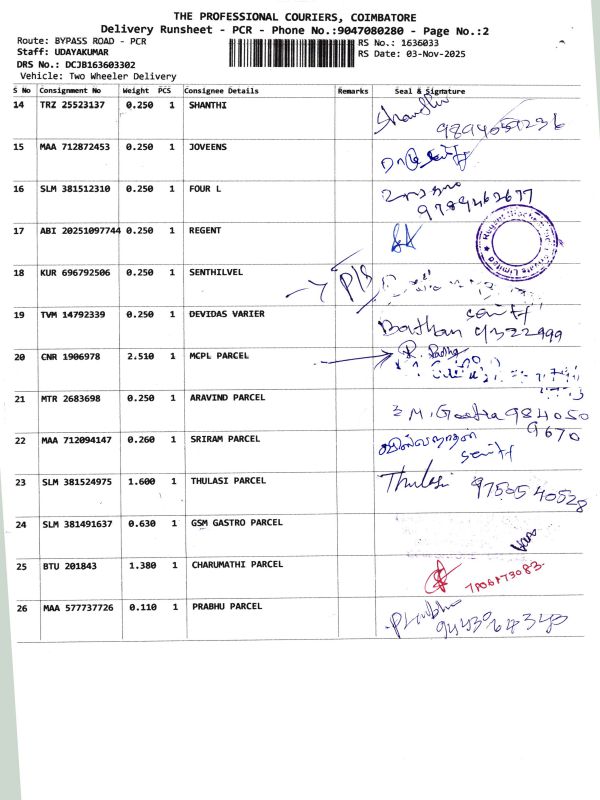 THE PROFESSIONAL COURIERS, COIMBATORE
Delivery Runsheet - PCR - Phone No.:9047080280 - Page No.:2
Route: BYPASS ROAD - PCR
RS No.: 1636033
Staff: UDAYAKUMAR
RS Date: 03-Nov-2025
DRS No.: DCJB163603302
Vehicle: Two Wheeler Delivery
S No Consignment No Weight PCS Consignee Details Remarks Seal & Signature
14 TRZ 25523137 0.250 1 SHANTHI Shanthi
9894057236
15 MAA 712872453 0.250 1 JOVEENS
16 SLM 381512310 0.250 1 FOUR L
9789462677
17 ABI 20251097744 0.250 1 REGENT
18 KUR 696792506 0.250 1 SENTHILVEL P/B
19 TVM 14792339 0.250 1 DEVIDAS VARIER
20 CNR 1906978 2.510 1 MCPL PARCEL R. Radha
21 MTR 2683698 0.250 1 ARAVIND PARCEL M. Geetha 984050
9670
22 MAA 712094147 0.260 1 SRIRAM PARCEL
23 SLM 381524975 1.600 1 THULASI PARCEL Thulasi 9750540528
24 SLM 381491637 0.630 1 GSM GASTRO PARCEL
25 BTU 201843 1.380 1 CHARUMATHI PARCEL
26 MAA 577737726 0.110 1 PRABHU PARCEL Prabhu